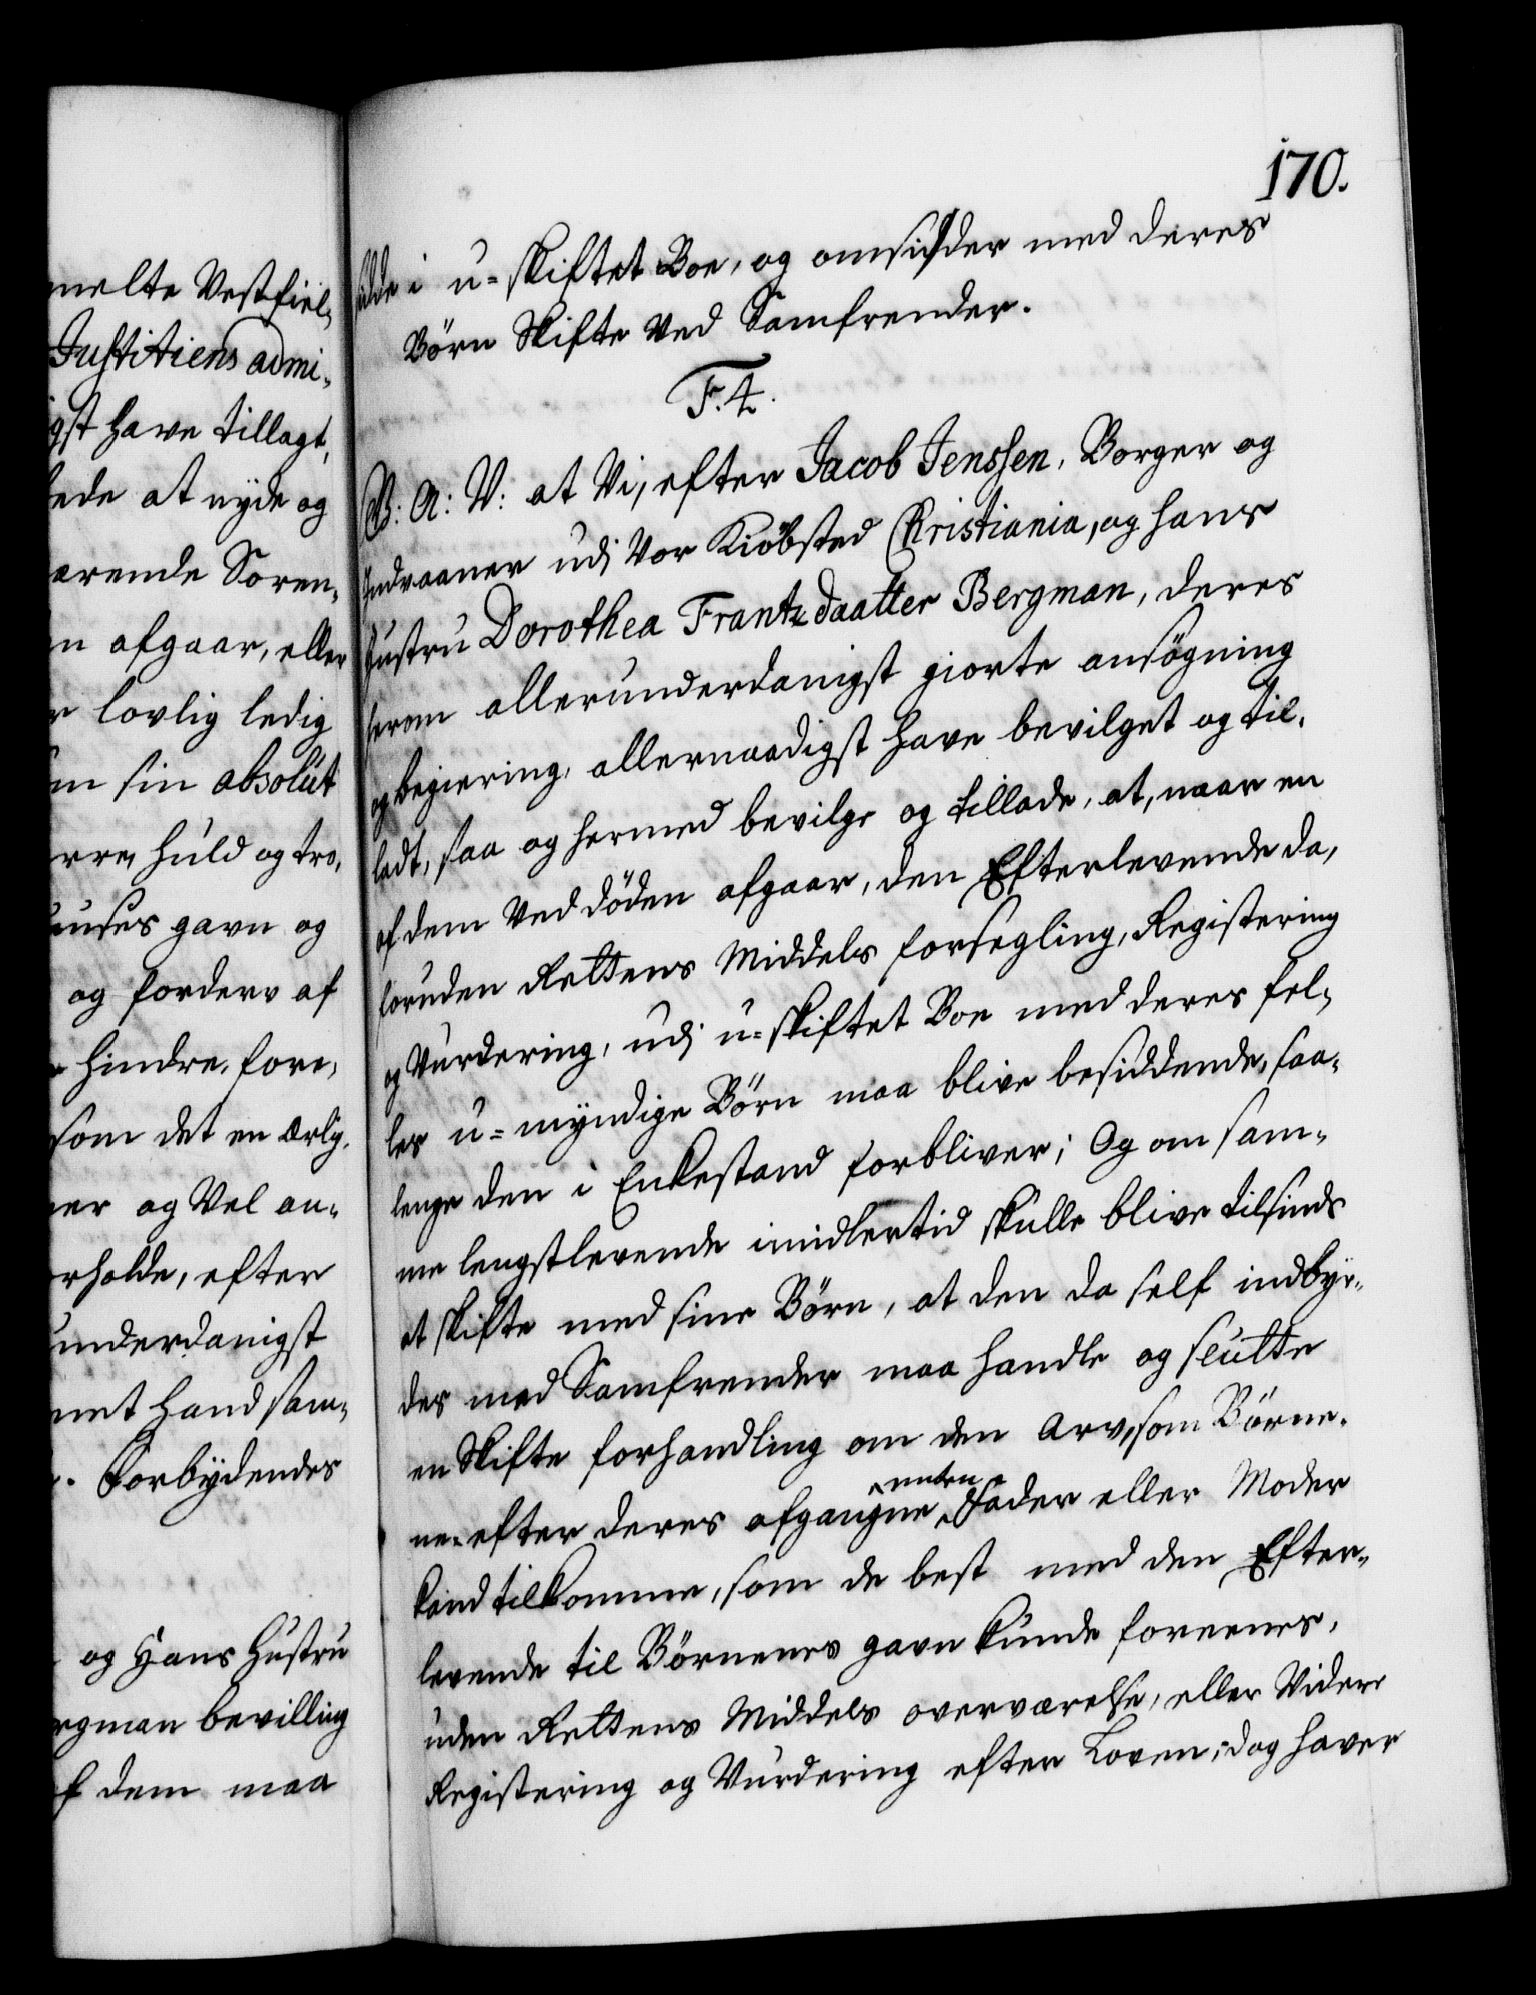 melte Vestfiel-
Justitiens admi-
gst have tillagt,
lede at nyde og
ærende Soren-
n afgaar, eller
r lovlig ledig
m sin absolut
rre, huld og tro,
uses gavn og
og forderv af
hindre, fore-
som det en ærlig-
ner og Vel an-
rholde, efter
underdanigst
met hand sam-
Forbydendes
og Hans Hustru
rgman bevilling
f dem maa
170.
sidde i u-skiftet Boe, og omsidder med deres
Börn Skifte Ved Samfrender.
F. 4.
V: A: V: at Vi, efter Jacob Jenssen, Borger og
Indvaaner udj Vor Kiöbsted Christiania, og hans
Hustru Dorothea Frantzdaatter Bergman, deres
herom allerunderdanigst giorte ansögning
og begiering, allernaadigst have bevilget og til-
ladt, saa og hermed bevilge og tillade, at, naar en
af dem Ved döden afgaar, den Efterlevende da,
foruden Rettens Middels forsegling, Registering
og Vurdering, udj u-skiftet Boe med deres fel-
les u-myndige Börn maa blive besiddende, saa-
lenge den i Enkestand forbliver; Og om sam-
me lengstlevende imidlertid skulle blive tilsinds
at skifte med sine Börn, at den da self indbyr-
des med Samfrender maa handle og slutte
en Skifte forhandling om den Arv, som Börne-
ne efter deres afgangne enten Fader eller Moder
kand tilkomme, som de best med den Efter-
levende til Börnenes gavn kunde foreenes,
uden Rettens Middels overværelse, eller Videre
Registering og Vurdering efter Loven; dog haver